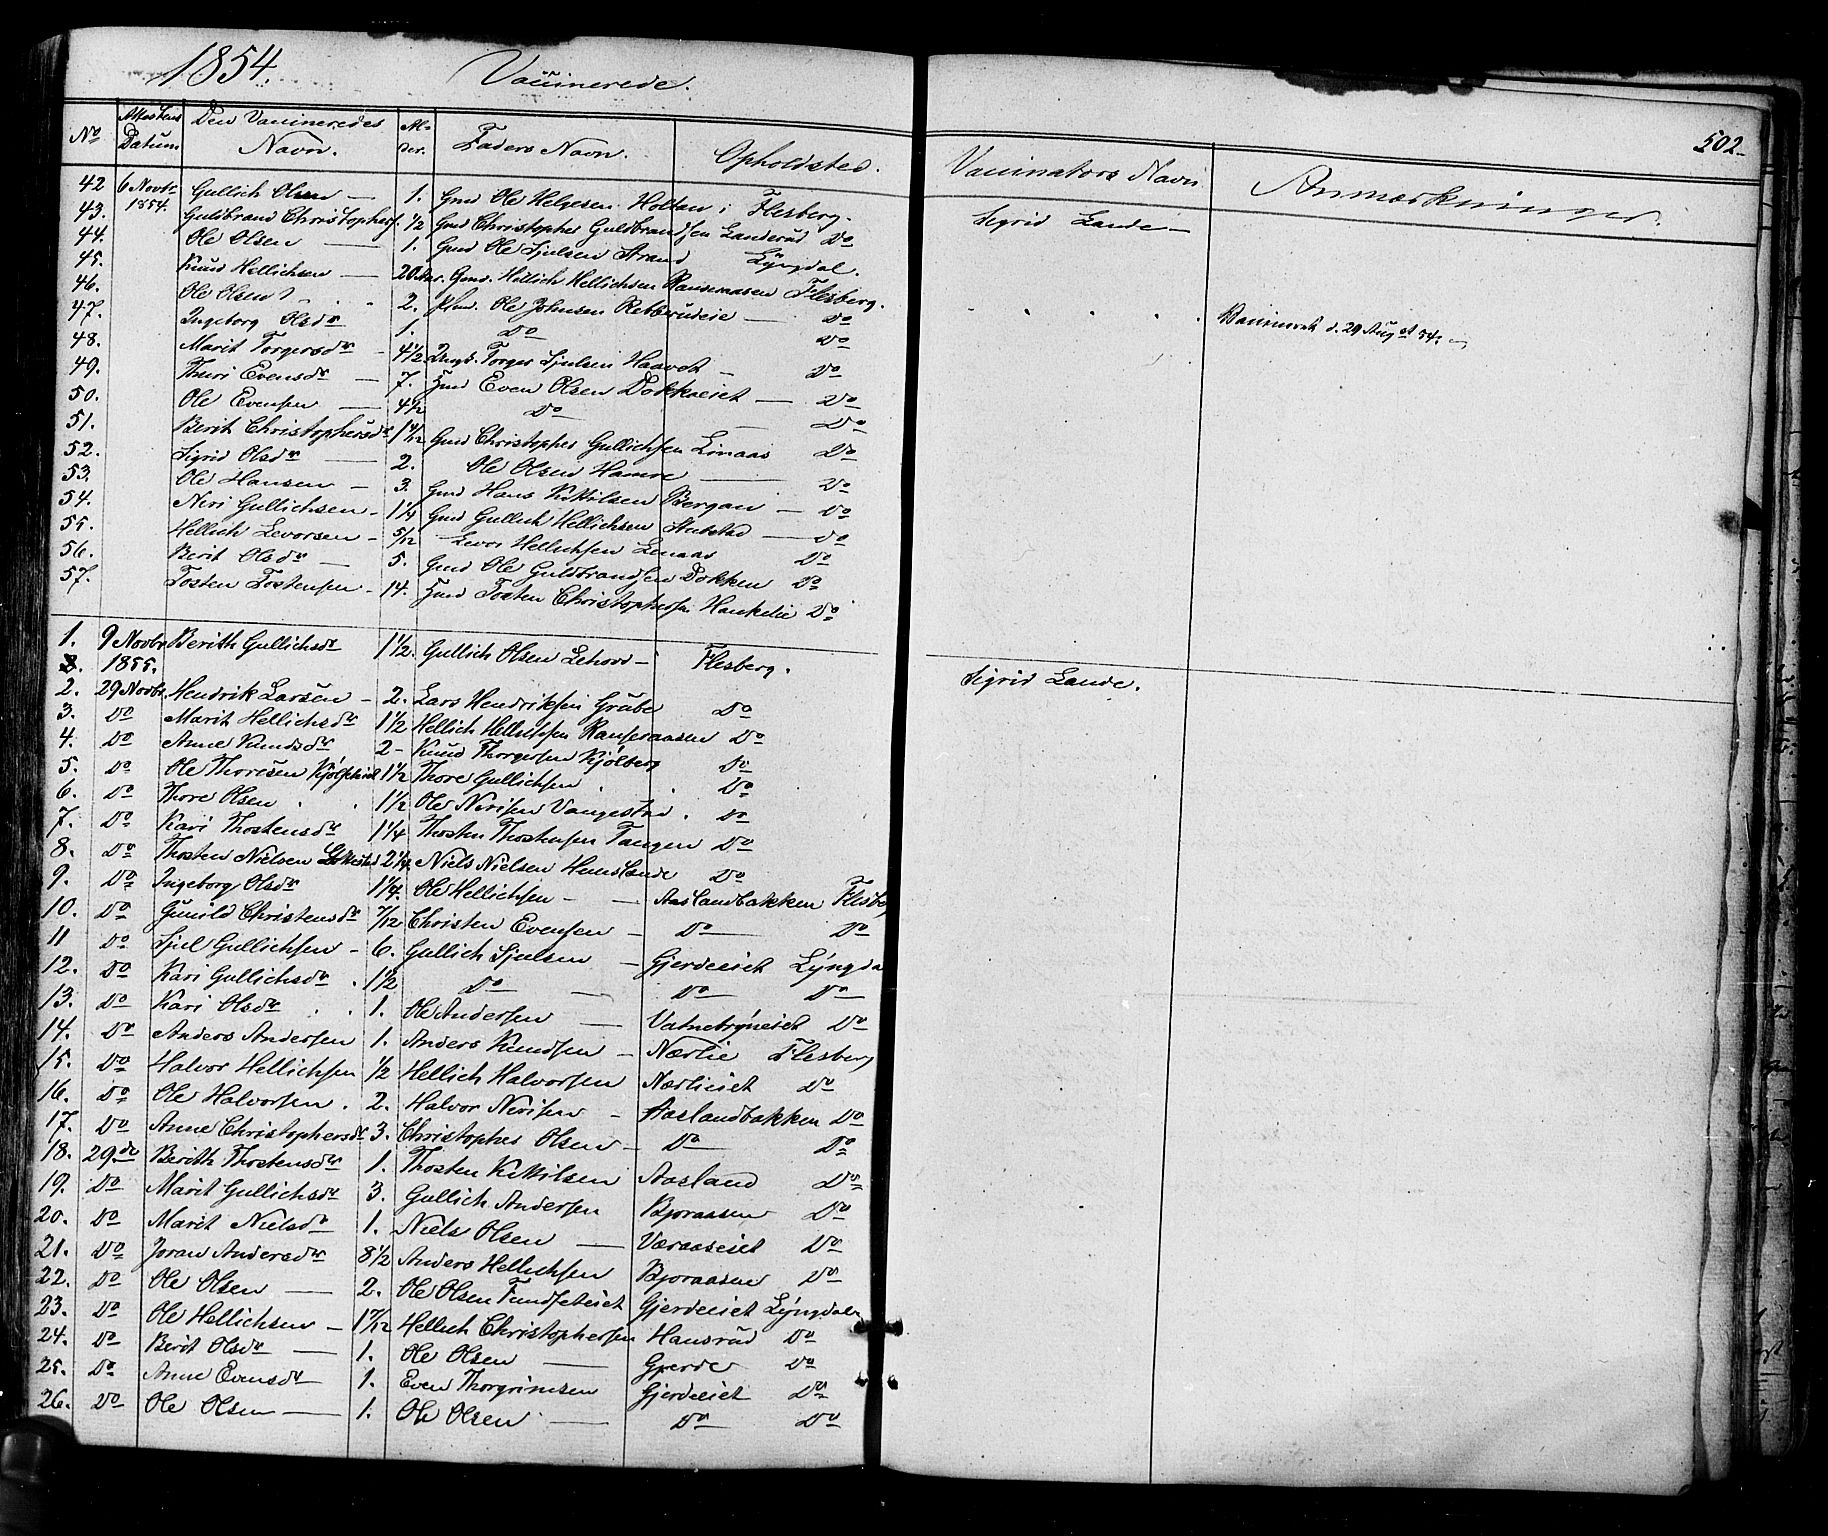 1854. Vaccinerede.
502
No Attestens Datum Den Vaccineredes Navn. Alder. Faders Navn. Opholdsted. Vaccinators Navn Anmærkninger.
42 6 Novbr 1854. Gullich Olsen 1. Gmd Ole Helgesen Holtan i Flesberg. Sigrid Lande
43. Guldbrand Christophers. 1/2 Gmd Christopher Guldbrandsen Landerud Do
44. Ole Olsen 1. Gmd Ole Sjulsen Strand Lyngdal.
45. Knud Hellichsen 20 Aar. Gmd. Hellich Hellichsen Ransemasen Flesberg.
46. Ole Olsen 2. Ole Johnsen Do Vaccineret d. 29 August 54.
47. Ingeborg Olsdr 1. Do Do
48. Marit Torgersdr 4 1/2 Torger Sjulsen Haavet Do
49. Thuri Evensdr 7. Hmd Even Olsen Dokkeiet Do
50. Ole Evensen 4 1/2 Do Do
51. Berit Christophersdr Gmd Christopher Gullichsen Linaas Do
52. Sigrid Olsdr 2. Ole Olsen Hamre Do
53. Ole Hansen 3. Gmd Hans Kittilsen Bergan Do
54. Neri Gullichsen 1 1/4 Gmd Gullich Hellichsen Do
55. Hellich Levorsen 5/12 Levor Hellichsen Linaas Do
56. Berit Olsdr 5. Gmd Ole Guldbrandsen Dokken Do
57. Tosten Tostensen 14. Hmd Tosten Christophersen Do
1. 9 Novbr 1855. Berith Gullichsdr 1 1/2 Gullich Olsen Lehovd Flesberg. Sigrid Lande.
2. 29 Novbr. Hendrik Larsen 2. Lars Hendriksen Grube Do
3. Do Marit Hellichsdr 1 1/2 Hellich Hellichsen Ranseraasen Do
4. Do Anne Knudsdr 2 Knud Thorgersen Kjølberg Do
5. Do Ole Thoresen 1 1/2 Thore Gullichsen Do
6. Do Thore Olsen 1 1/2 Ole Nerisen Vangestad. Do
7. Do Kari Thostensdr 1 1/4 Thosten Thostensen Tangen Do
8. Do Thosten Nielsen 2 1/4 Niels Nielsen Do
9. Do Ingeborg Olsdr 1 1/4. Ole Hellichsen Aaslandbakken Flesberg
10. Do Gunild Christensdr 7/12 Christen Evensen Do Do
11 Do Sjul Gullichsen 6. Gullich Sjulsen Gjerdeeiet Lyngda
12. Do Kari Gullichsdr 1 1/2 Do Do Do
13. Do Kari Olsdr 1. Ole Andersen Vatnebryneiet Do
14. Do Anders Andersen 1. Anders Knudsen Nærlie Flesberg
15. Do Halvor Hellichsen 1/2 Hellich Halvorsen Nærlieiet Do
16. Do Ole Halvorsen 2. Halvor Nerisen Aaslandbakken Do
17. Do Anne Christophersdr 3. Christopher Olsen Do Do
18. 29. de Berith Thostensdr 1. Thosten Kittilsen Aasland Do
19. Do Marit Gullichsdr 3. Gullich Andersen Bjoraasen Do
20. Do Marit Nielsdr 1. Niels Olsen Væraaseiet Do
21. Do Joran Andersdr 8 1/2 Anders Hellichsen Bjoraasen Do
22. Do Ole Olsen 2. Ole Olsen Gjerdeeiet Lyngdal
23. Do Ole Hellichsen 1 7/12 Hellich Christophersen Hansrud Do
24. Do Berit Olsdr 1. Ole Olsen Gjerde Do
25. Do Anne Evensdr 1. Even Thorgrimsen Gjerdeeiet Do
26. Do Ole Olsen 1. Ole Olsen Do Do